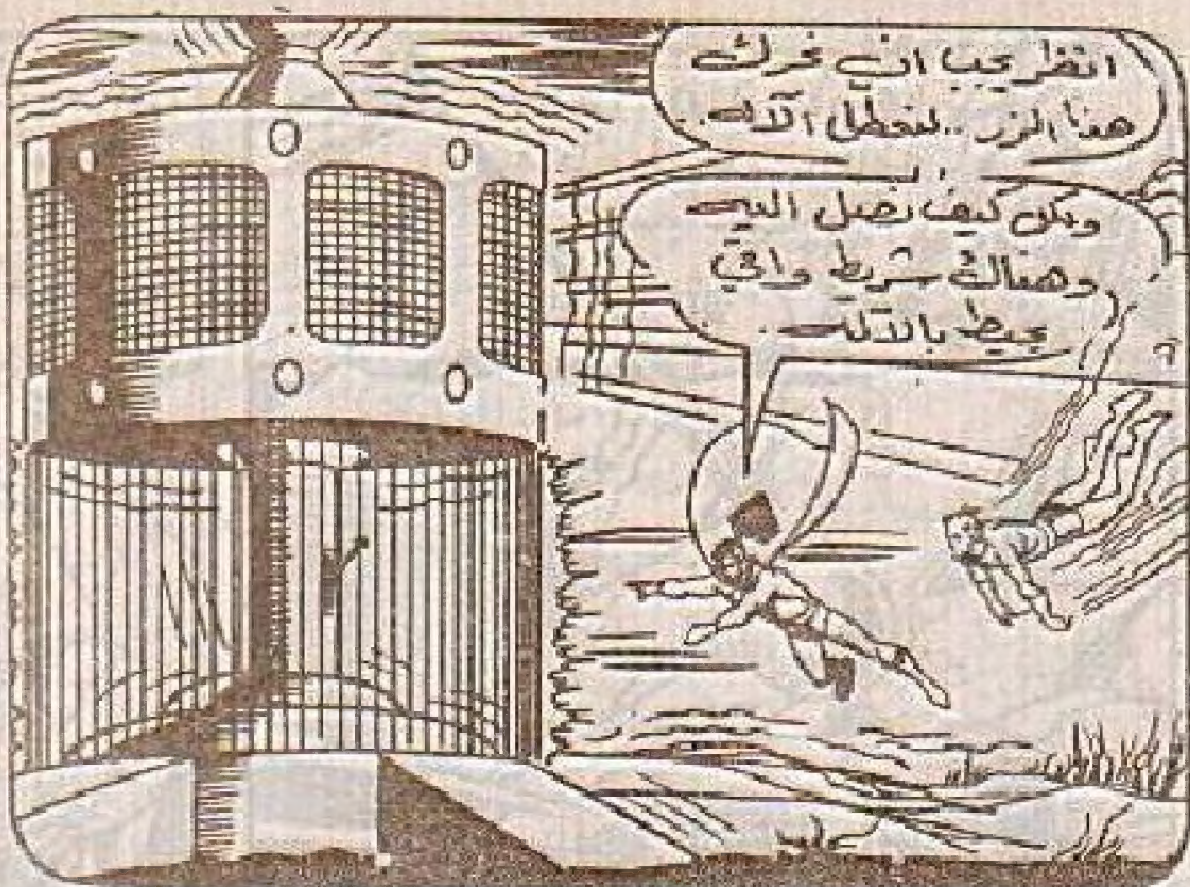 انظر يجب ان نحرك
هذا الزر .. لنعطل الآله
ولكن كيف نصل اليه
وهناك شريط واقي
يحيط بالآله